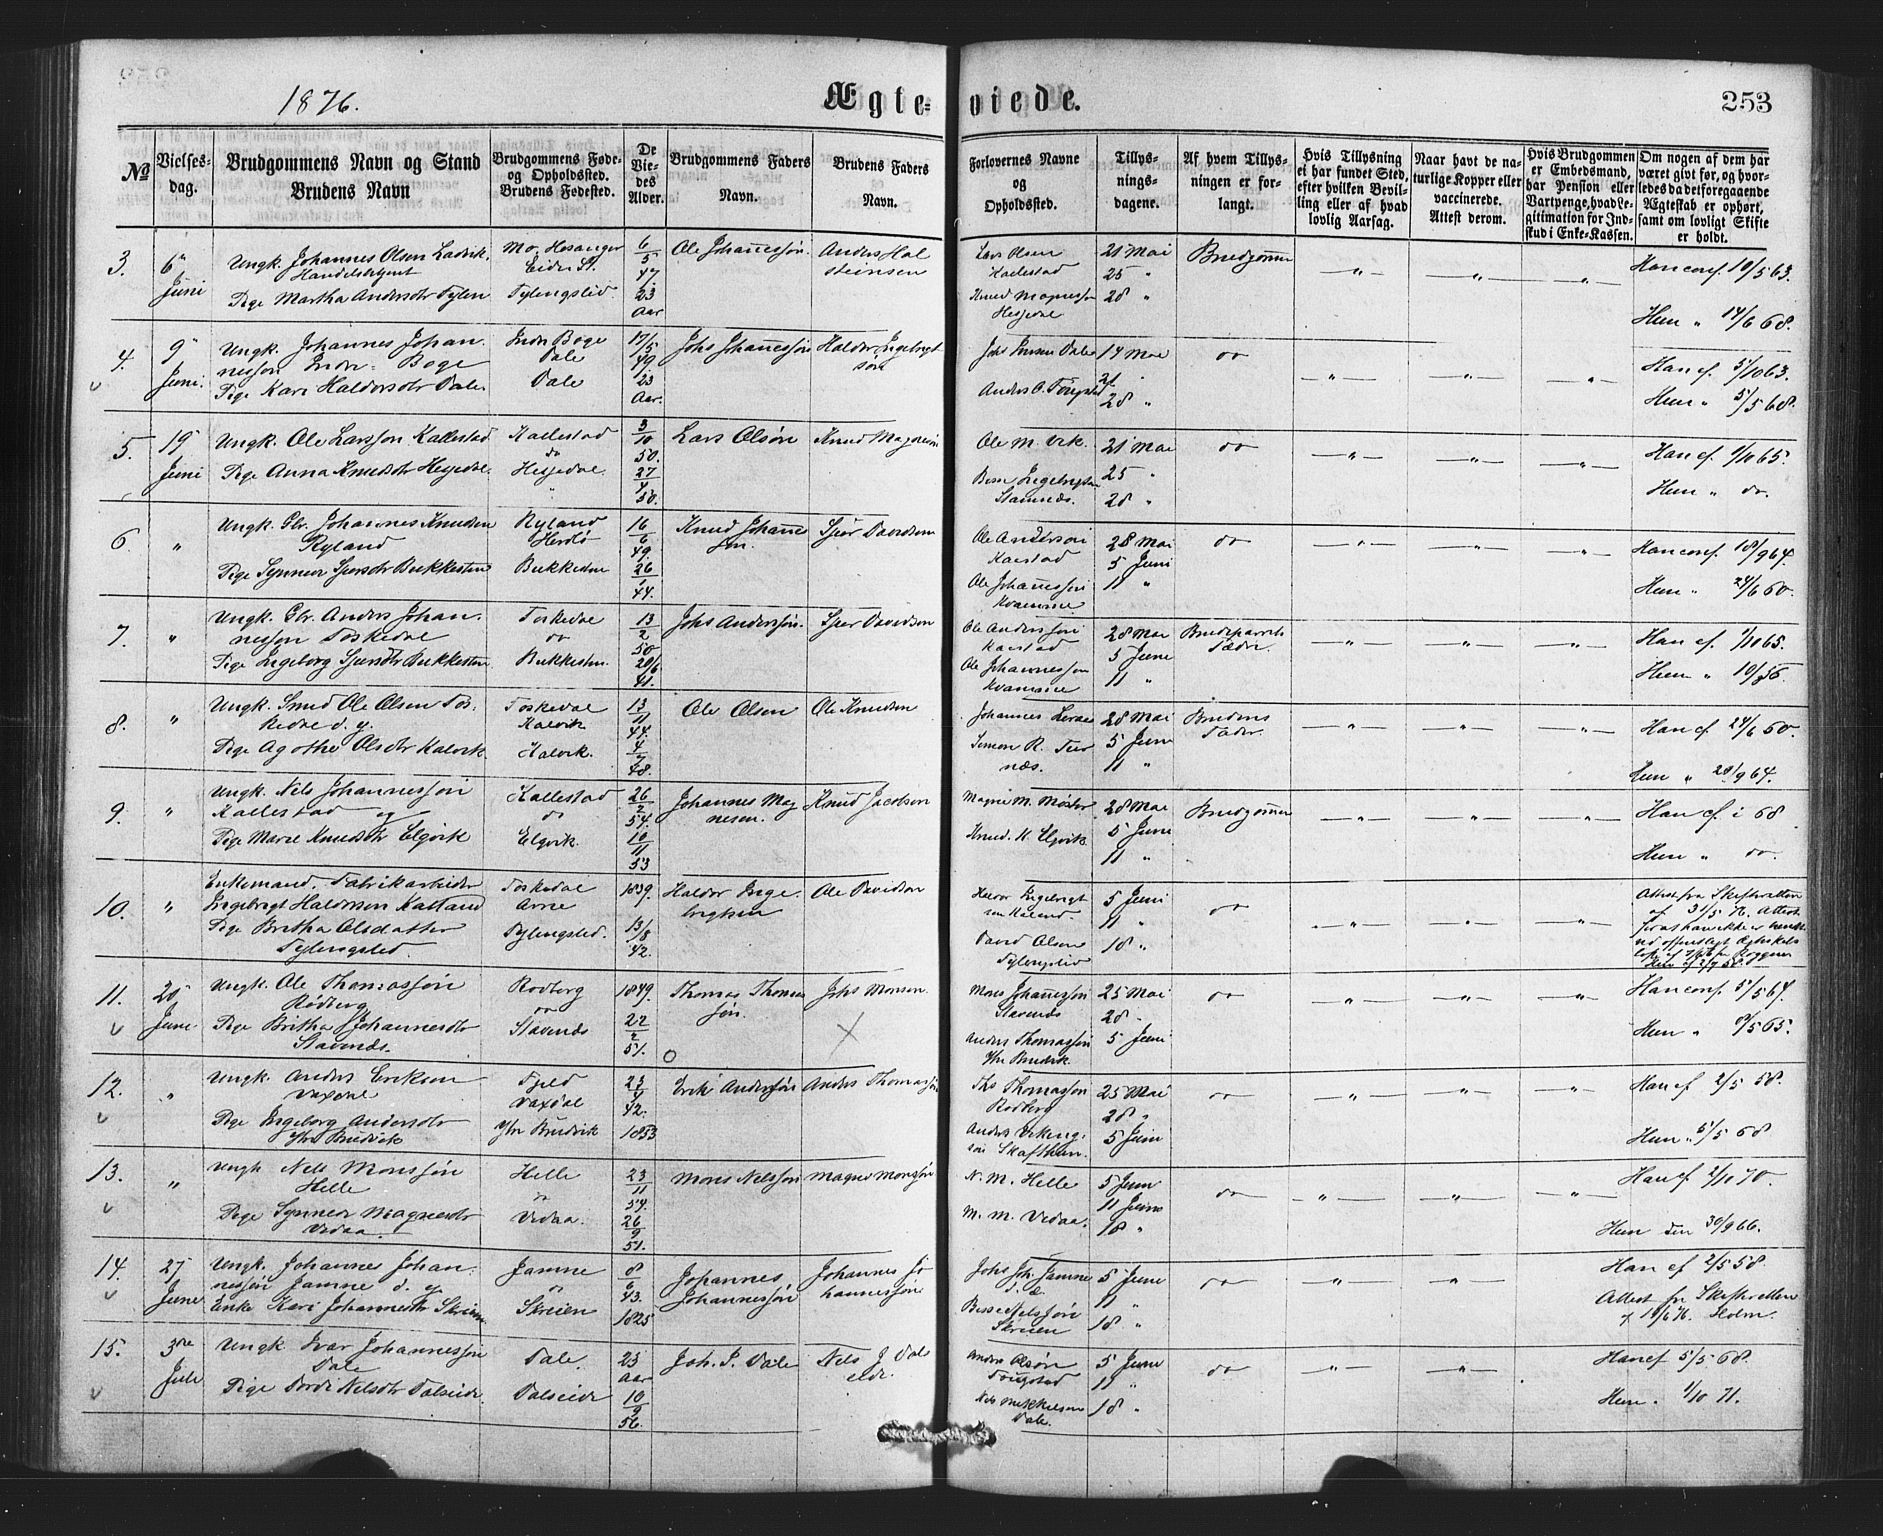 1876.
Ægte-
viede.
253
No
Vielses-
dag.
Brudgommens Navn og Stand
Brudens Navn
Brudgommens Føde-
og Opholdssted.
Brudens Fødested.
De
Vie-
des
Alder.
Brudgommens Faders
Navn.
Brudens Faders
Navn.
Forlovernes Navne
og
Opholdssted.
Tillys-
nings-
dagene.
Af hvem Tillys-
ningen er for-
langt.
Hvis Tillysning
ei har fundet Sted,
efter hvilken Bevil-
ling eller af hvad
lovlig Aarsag.
Naar havt de na-
turlige Kopper eller
vaccinerede.
Attest derom.
Hvis Brudgommen
er Embedsmand,
har Pension eller
Vartpenge, hvad Le-
gitimation for Ind-
skud i Enke-Kassen.
Om nogen af dem har
været givt før, og hvor-
ledes da det foregaaende
Ægteskab er ophørt,
samt om lovligt Skifte
er holdt.
3.
6"
Juni
Ungk. Johannes Olsen
Pige Martha Andersdtr Fylen
23
Aar
Ole Johannessøn
Anders Hal
steinsen
Lars Olsen
Kallestad
21 Mai
25 "
28 "
Brudgommen
Han conf. 10/5 63.
Hun " 14/6 68.
4.
9"
Juni.
Ungk. Johannes Johan
nessøn Indre Boge
Pige Kari Haldorsdtr Dale
Indre Boge
Dale
Dale
17/5
49.
23
Aar.
Johs Johannessøn
Haldor Engebrigt
søn
14 Mai
21 "
28 "
do
Han cf. 5/10 63.
Hun " 5/5 68.
5.
19"
Juni
Ungk. Ole Larssøn Kallestad
Pige Anna Knudsdtr Hesjedal
Kallestad
do
Hesjedal
3
10
50.
27
4
50.
Lars Olsøn
Knud Magnesøn
Ole M. Vik.
Stamnes.
21 Mai
25 "
28 "
do
Han cf. 1/10 65.
Hun " do.
6.
"
Ungk. Gbr. Johannes Knudsen
Ryland
Pige Synneva Sjursdtr Bukkesten
Ryland
Herdlø
Bukkesten
16
6
49.
26
1
44.
Knud Johanne
søn.
Sjur Davidsen
Ole Anderson
Kaarstad
Ole Johannessøn
Kvamme
28 Mai
5 Juni
11 "
do
Han conf. 18/9 64.
Hun " 24/6 60.
7.
"
Ungk. Gbr. Anders Johan
nessøn Foskedal
Pige Engeborg Sjursdtr Bukkesten
Foskedal
do
Bukkesten.
13
2
50
20/6
41.
Johs Anderssøn.
Sjur Davidsen
Ole Anderssøn
Kaarstad
Ole Johannessøn
Kvamme
28 Mai
5 Juni
11 "
Brudeparrets
Fædre.
Han cf. 1/10 65.
Hun " 10/8 56
8.
"
Ungk. Smed Ole Olsen Fos-
kedal d. y.
Pige Agathe Olsdtr Kalvik
Foskedal
Kalvik
Kalvik.
13
11
44.
4
7
48.
Ole Olsen
Ole Knudsen
Simon R. Tur
næs.
28 Mai
5 Juni
11 "
Brudens
Fader
Han cf. 24/6 60.
Hun " 20/9 64.
9.
"
Ungk. Nils Johannessøn
Kallestad og
Pige Marie Knudsdtr Elgvik
Kallestad
do
Elgvik.
26
2
54.
10
11
53
Johannes Mag
nesen.
Knud Jacobsen
Magne M. Møster
Knud. K. Elgvik
28 Mai
5 Juni
11 "
Brudgommen
Han cf i 68
Hun " do.
10.
"
Enkemand. Fabrikarbeider
Engebrigt Haldorsen Kalland
Pige Britha Olsdatter
Fylingsled.
Foskedal
Arne
Fylingsled.
1839.
13/8
42.
Haldor Enge
brigtsen
Ole Davidsen
David Olsen
Fylingsled
5 Juni
11 "
18 "
do
Attest fra Skifteretten
11.
20"
Juni
Ungk. Ole Thomassøn
Rødberg
Pige Britha Johannesdtr
Stavenæs.
Rødberg
do
Stavenæs
1849.
22
2
51.
Thomas Thomas
søn.
Johs Monsen.
Mons Johannessøn
Stavenæs
Anders Thomassøn
Ytre Bruvik.
25 Mai
28 "
5 Juni
do
Han conf. 5/5 64.
Hun " 8/5 65.
12.
"
Ungk. Anders Eriksen
Vaxdal
Pige Engeborg Andersdtr
Ytre Bruvik
Fjeld
Vaxdal
Ytre Bruvik
23
4
42.
1853
Erik Anderssøn
Anders Thomassøn
Ths Thomassøn
Rødberg
Anders Viking-
søn Skafthun.
25 Mai
28 "
5 Juni
do
Han cf 2/5 58.
Hun " 5/5 68
13.
"
Ungk. Nils Monssøn
Helle
Pige Synneva Magnesdtr
Vidaa.
Helle
do
Vidaa.
23
11
54.
26
9
51.
Mons Nilssøn
Magne Monssøn
N. M. Helle
M. M. Vidaa.
5 Juni
11 Juni
18 "
do
Han cf. 2/10 70.
Hun den 30/9 66.
14.
27
Juni
Ungk. Johannes Johan-
nessøn Jamne d. y.
Enke Kari Johannesdtr Skreien
Jamne
do
Skreien
8
6
43.
1825
Johannes
Johannessøn
Johannes Jo
hannessøn
Johs Joh. Jamne
Skreien
5 Juni
11 "
18 "
do
Han cf 2/5 58.
Attest fr Skifteretten
15.
3die
Juli
Ungk. Ivar Johannessøn
Dale
Pige Dordi Nilsdtr Dalseide
Dale.
Dalseide
23
Aar
10
9
56.
Joh. I. Dale
Nils J. Dals
eide.
Anders Olsøn
Fougstad
Nils Mikkelsen
Dale.
5 Juni
11 "
18 "
do
Han cf 5/5 68.
Hun. 1/10 71.